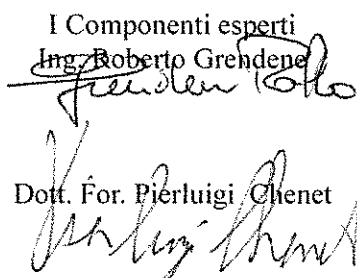 I Componenti esperti
Ing. Roberto Grendene
Dott. For. Pierluigi Chenet